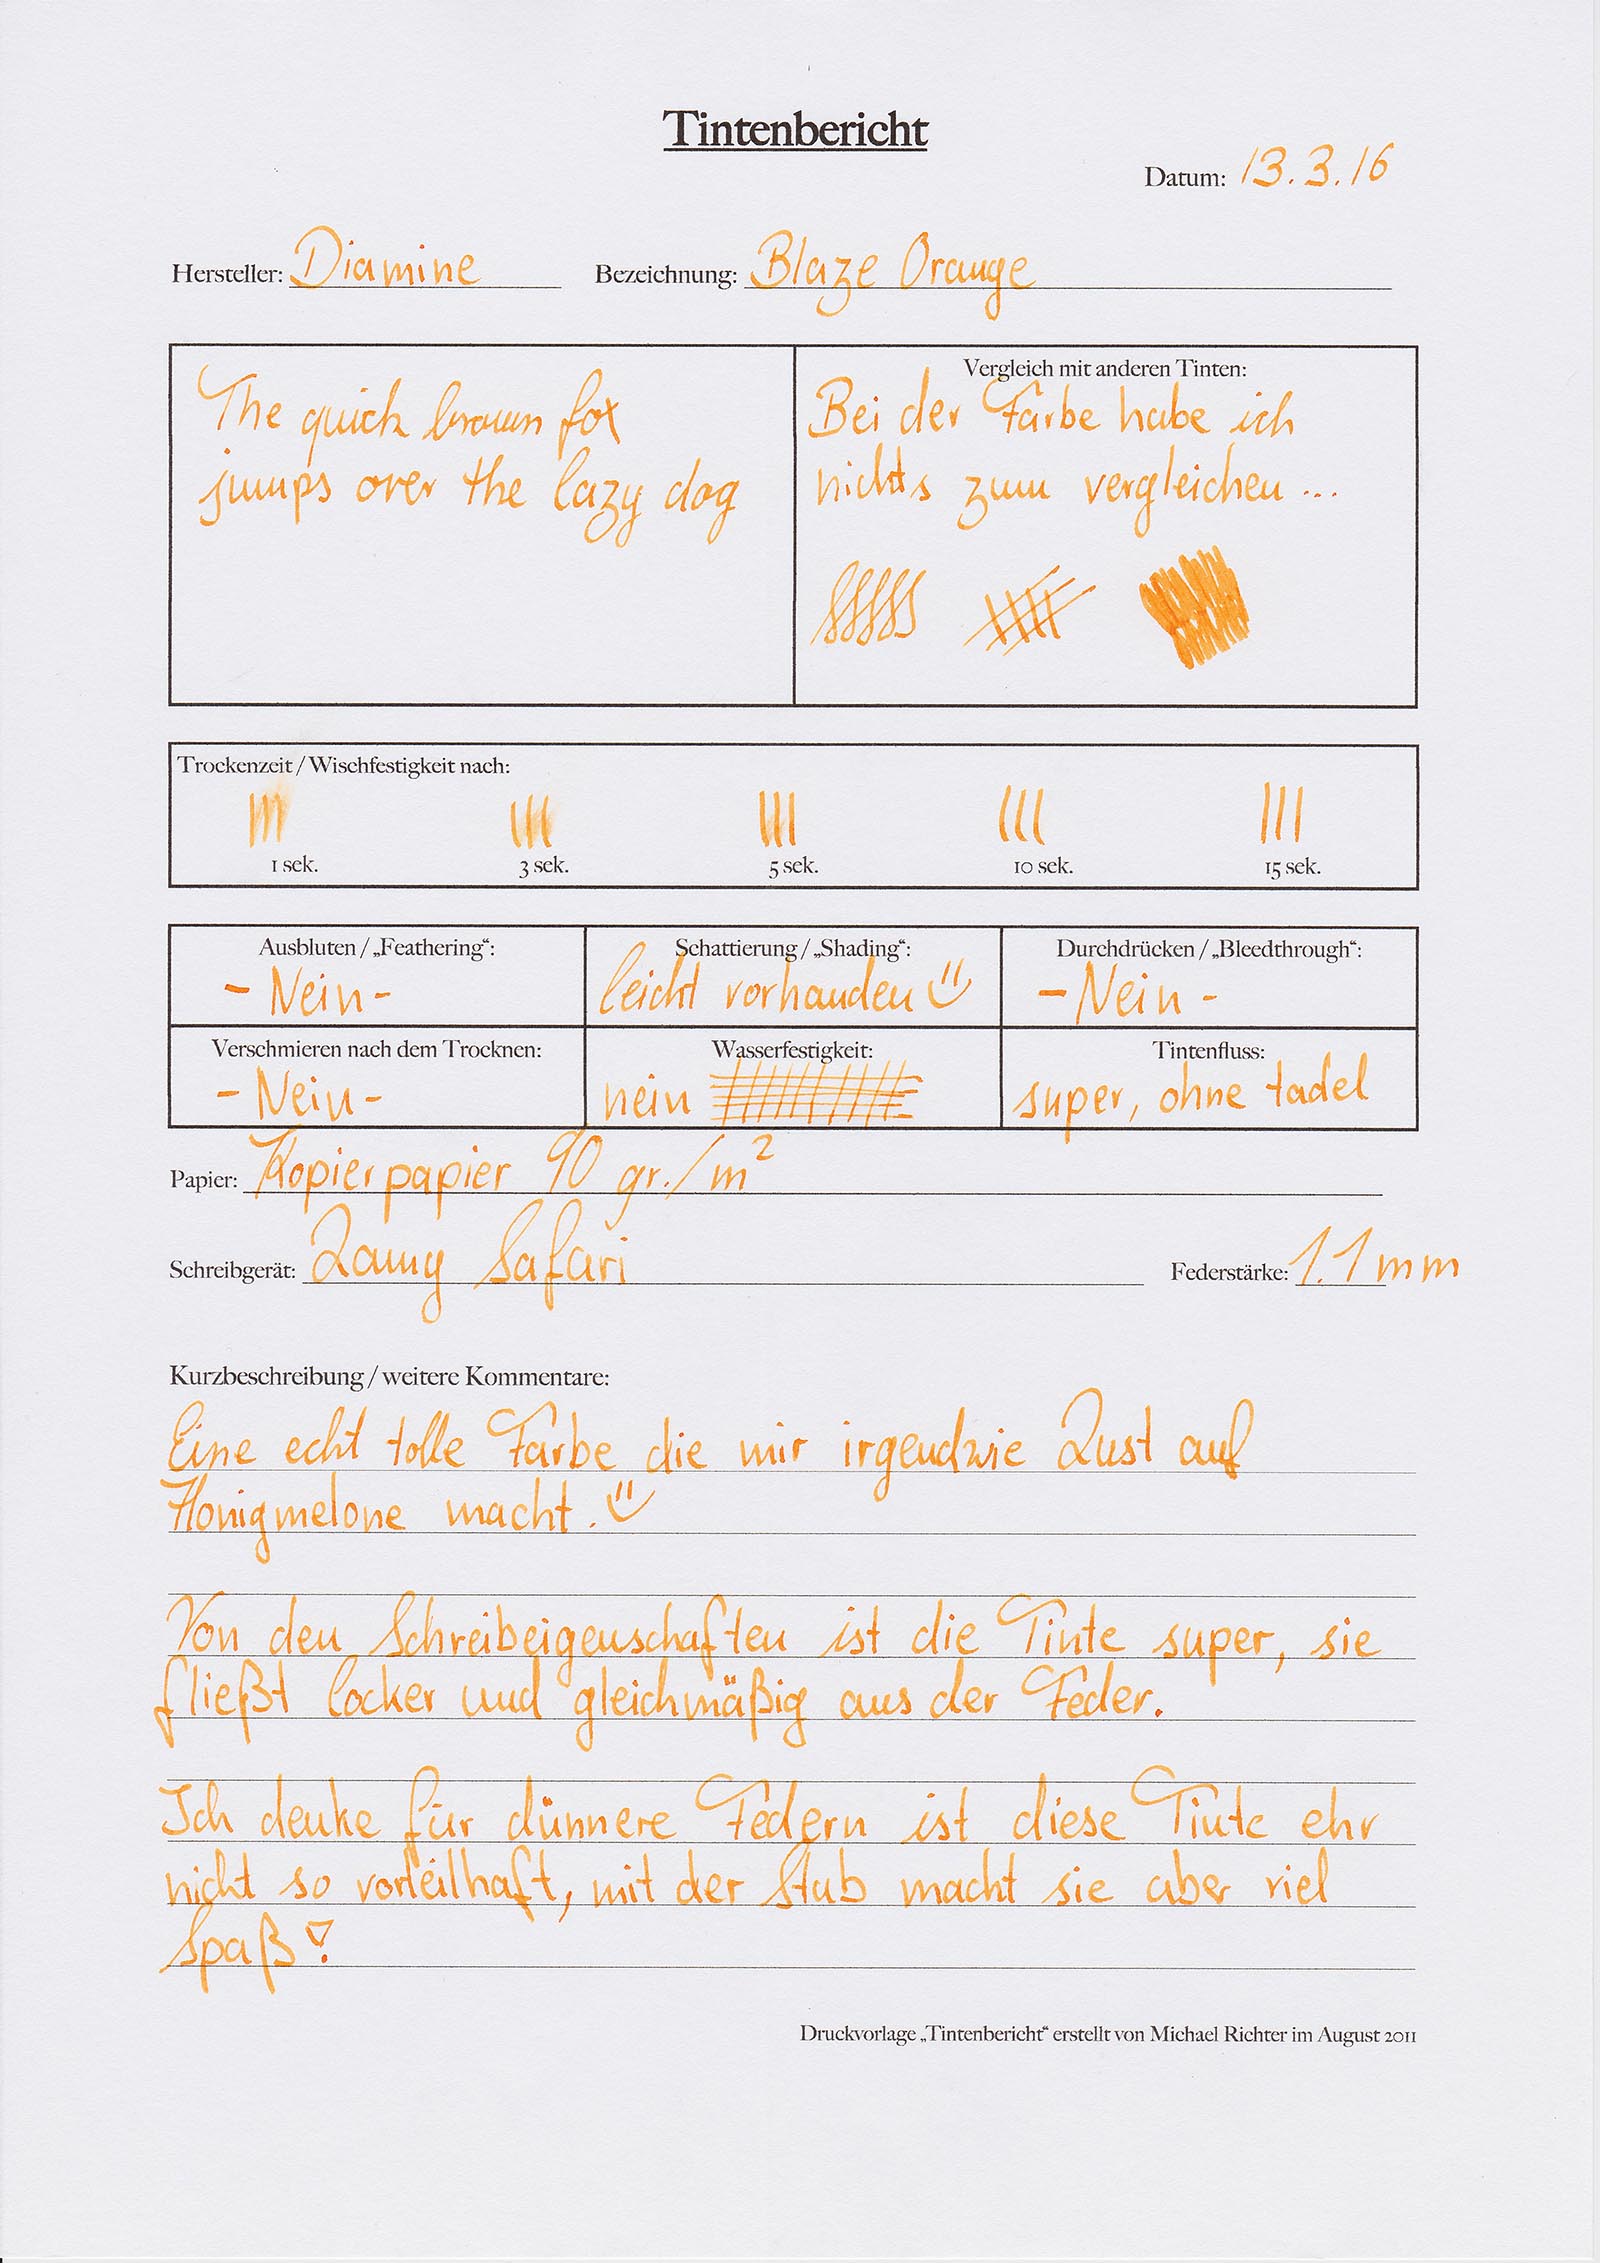 Tintenbericht
Datum: 13.3.16
Hersteller: Diamine Bezeichnung: Blaze Orange
The quick brown fox
jumps over the lazy dog
Vergleich mit anderen Tinten:
Bei der Farbe habe ich
nichts zum vergleichen ...
Trockenzeit / Wischfestigkeit nach:
1 sek. 3 sek. 5 sek. 10 sek. 15 sek.
Ausbluten / „Feathering“: Schattierung / „Shading“: Durchdrücken / „Bleedthrough“:
- Nein - leicht vorhanden - Nein -
Verschmieren nach dem Trocknen: Wasserfestigkeit: Tintenfluss:
- Nein - nein super, ohne tadel
Papier: Kopierpapier 90 gr./m²
Schreibgerät: Lamy Safari Federstärke: 1.1 mm
Kurzbeschreibung / weitere Kommentare:
Eine echt tolle Farbe die mir irgendwie Lust auf
Honigmelone macht.
Von den Schreibeigenschaften ist die Tinte super, sie
fließt locker und gleichmäßig aus der Feder.
Ich denke für dünnere Federn ist diese Tinte ehr
nicht so vorteilhaft, mit der Stub macht sie aber viel
Spaß!
Druckvorlage „Tintenbericht“ erstellt von Michael Richter im August 2011